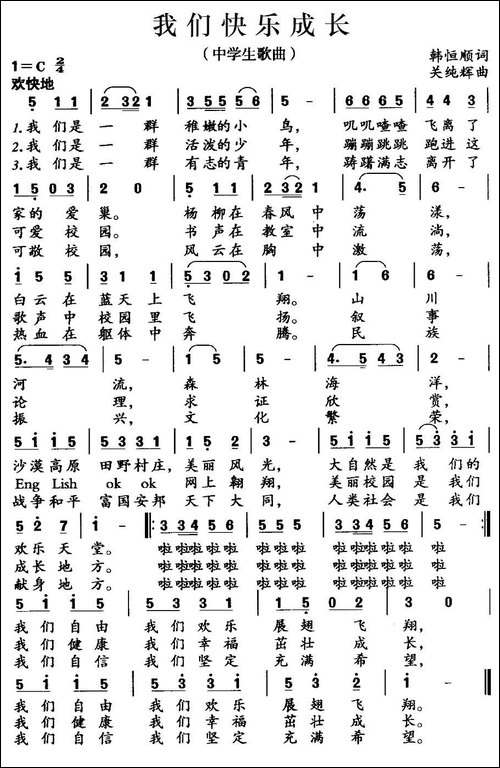 我们快乐成长
(中学生歌曲)
韩恒顺词
关纯辉曲
1=C 2/4
欢快地
5 1 1 | 2 3 2 1 | 3 5 5 5 5 6 | 6 6 6 5 | 4 4 3 |
1.我 们是 一 群 稚嫩的小 鸟, 叽叽喳喳 飞离了
2.我 们是 一 群 活泼的少 年, 蹦蹦跳跳 跑进这
3.我 们是 一 群 有志的青 年, 踌躇满志 离开了
1 5 0 3 | 2 0 | 5 5 5 | 2 3 2 1 | 4. 5 | 6 - |
家的 爱 巢。 杨 柳在 春风 中 荡 漾,
可爱 校 园。 书 声在 教室 中 流 淌,
可敬 校 园, 风 云在 胸 中 激 荡,
1 5 5 | 3 1 1 | 5 3 0 2 | 1 - | 1 6 | 6 - |
白 云 在 蓝 天 上 飞 翔。 山 川
歌 声 中 校 园 里 飞 扬。 叙 事
热 血 在 躯 体 中 奔 腾。 民 族
5. 4 3 4 | 5 - | 1 5 | 5 - | 4. 5 4 3 | 2 - |
河 流, 森 林 海 洋,
论 理, 求 证 欣 赏,
振 兴, 文 化 繁 荣,
5 1 1 5 | 5 3 3 1 | 1 5 2 | 3 - | 5 1 1 5 | 5 3 3 1 |
沙漠高原 田野村庄, 美丽 风 光, 大自然是 我 们的
Eng Lish ok ok 网上 翱 翔, 美丽校园 是 我们
战争和平 富国安邦 天下 大 同, 人类社会 是 我们
5 2 7 | 1 - |: 3 3 4 5 6 | 5 5 5 | 3 3 4 5 6 | 5 - :|
欢乐 天 堂。 啦 啦啦啦 啦啦啦 啦 啦啦啦 啦
成长 地 方。 啦 啦啦啦 啦啦啦 啦 啦啦啦 啦
献身 地 方。 啦 啦啦啦 啦啦啦 啦 啦啦啦 啦
5 1 1 5 | 5 3 3 1 | 1 5 5 5 | 3 0 |
我 们 自 由 我 们 欢 乐 展 翅 飞 翔,
我 们 健 康 我 们 幸 福 茁 壮 成 长,
我 们 自 信 我 们 坚 定 充 满 希 望,
5 1 1 5 | 5 3 3 1 | 5 2 3 2 | 1 - ‖
我 们 自 由 我 们 欢 乐 展 翅 飞 翔。
我 们 健 康 我 们 幸 福 茁 壮 成 长。
我 们 自 信 我 们 坚 定 充 满 希 望。